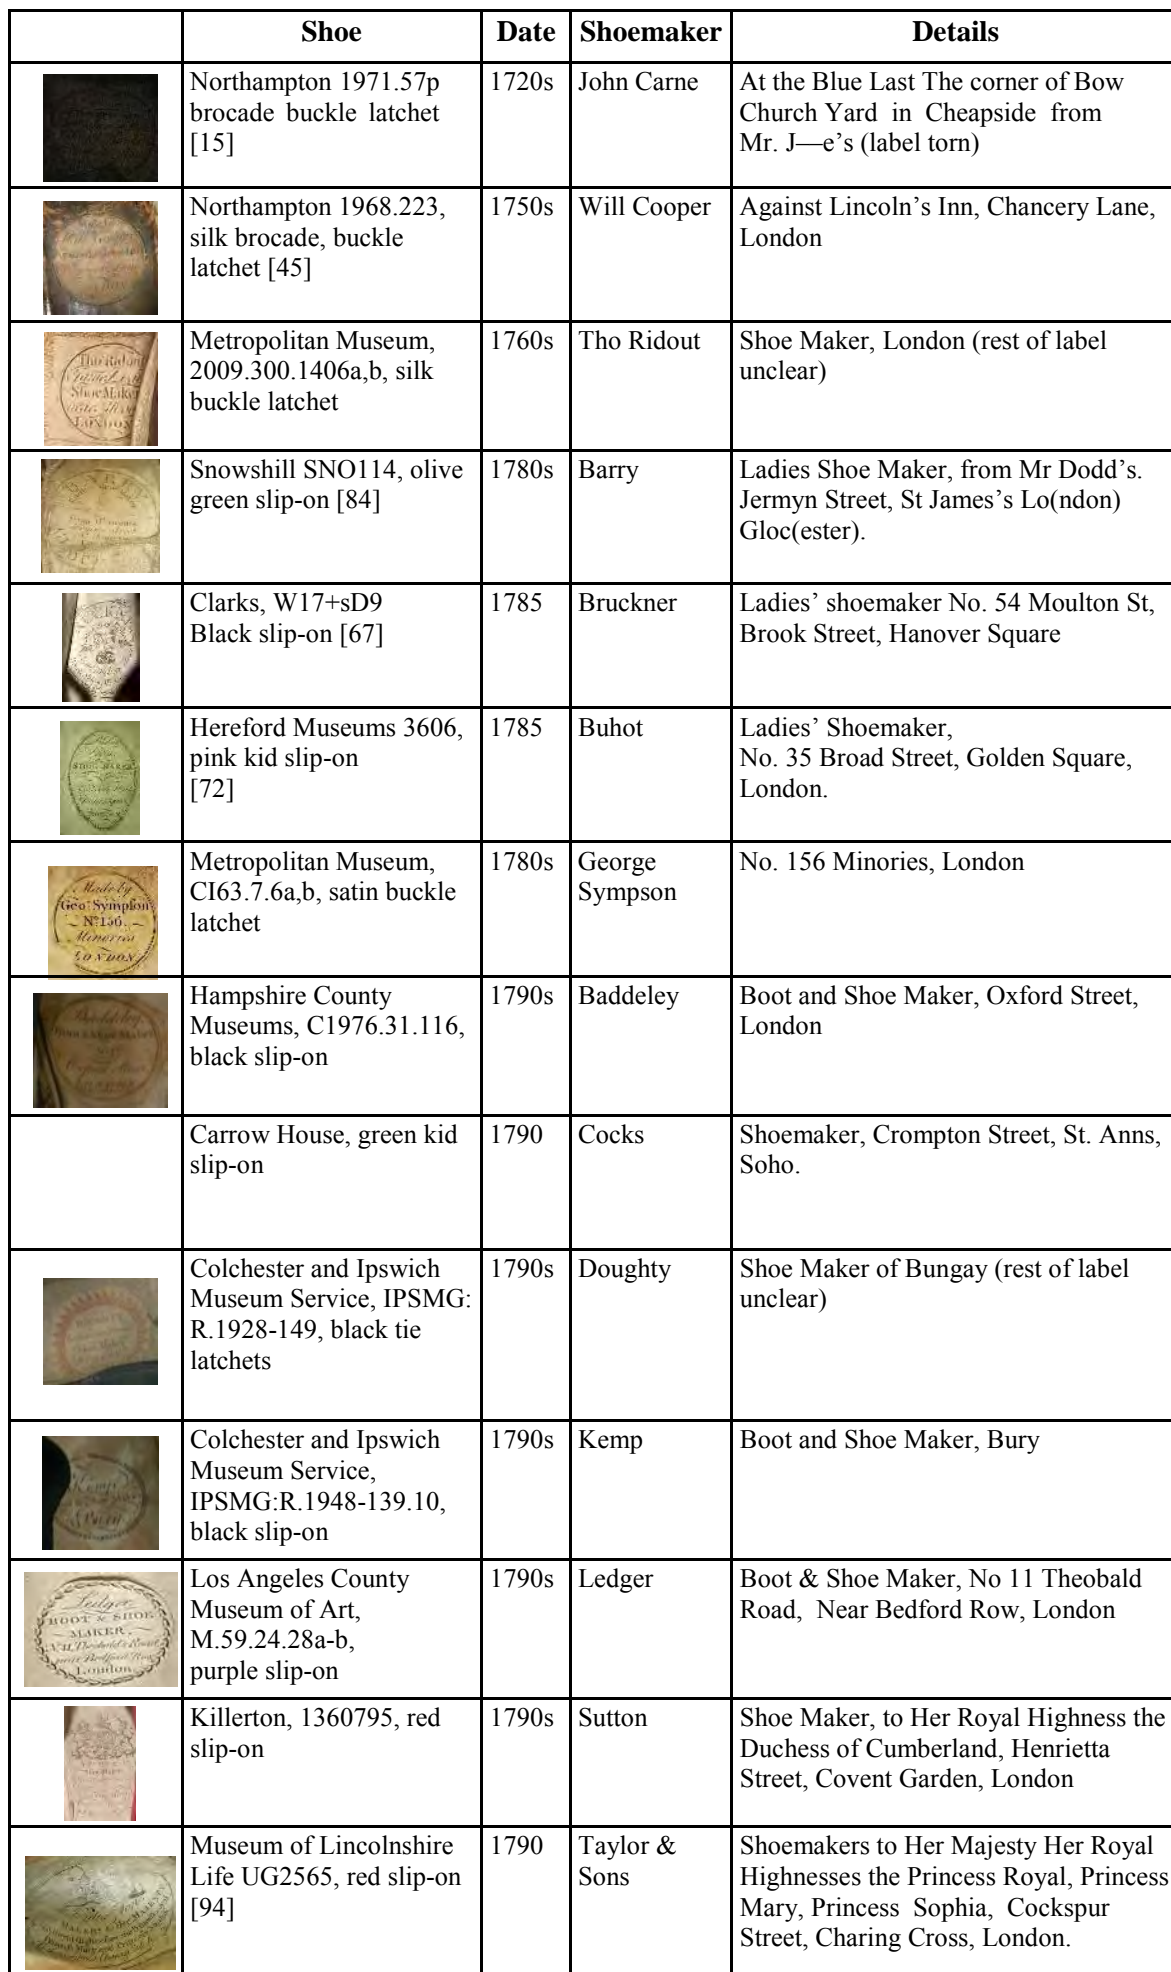 Shoe Date Shoemaker Details
Northampton 1971.57p
brocade buckle latchet
[15]
1720s
John Carne
At the Blue Last The corner of Bow
Church Yard in Cheapside from
Mr. J—e's (label torn)
Northampton 1968.223,
silk brocade, buckle
latchet [45]
1750s
Will Cooper
Against Lincoln's Inn, Chancery Lane,
London
Tho Ridout
Shoe Maker
LONDON
Metropolitan Museum,
2009.300.1406a,b, silk
buckle latchet
1760s
Tho Ridout
Shoe Maker, London (rest of label
unclear)
Snowshill SNO114, olive
green slip-on [84]
1780s
Barry
Ladies Shoe Maker, from Mr Dodd's.
Jermyn Street, St James's Lo(ndon)
Gloc(ester).
Clarks, W17+sD9
Black slip-on [67]
1785
Bruckner
Ladies' shoemaker No. 54 Moulton St,
Brook Street, Hanover Square
Hereford Museums 3606,
pink kid slip-on
[72]
1785
Buhot
Ladies' Shoemaker,
No. 35 Broad Street, Golden Square,
London.
Made by
Geo Sympson
No. 156.
Minories
LONDON
Metropolitan Museum,
CI63.7.6a,b, satin buckle
latchet
1780s
George
Sympson
No. 156 Minories, London
Baddeley
Hampshire County
Museums, C1976.31.116,
black slip-on
1790s
Baddeley
Boot and Shoe Maker, Oxford Street,
London
Carrow House, green kid
slip-on
1790
Cocks
Shoemaker, Crompton Street, St. Anns,
Soho.
Colchester and Ipswich
Museum Service, IPSMG:
R.1928-149, black tie
latchets
1790s
Doughty
Shoe Maker of Bungay (rest of label
unclear)
Kemp
Bury
Colchester and Ipswich
Museum Service,
IPSMG:R.1948-139.10,
black slip-on
1790s
Kemp
Boot and Shoe Maker, Bury
Ledger
BOOT & SHOE
MAKER,
London
Los Angeles County
Museum of Art,
M.59.24.28a-b,
purple slip-on
1790s
Ledger
Boot & Shoe Maker, No 11 Theobald
Road, Near Bedford Row, London
Killerton, 1360795, red
slip-on
1790s
Sutton
Shoe Maker, to Her Royal Highness the
Duchess of Cumberland, Henrietta
Street, Covent Garden, London
Museum of Lincolnshire
Life UG2565, red slip-on
[94]
1790
Taylor &
Sons
Shoemakers to Her Majesty Her Royal
Highnesses the Princess Royal, Princess
Mary, Princess Sophia, Cockspur
Street, Charing Cross, London.